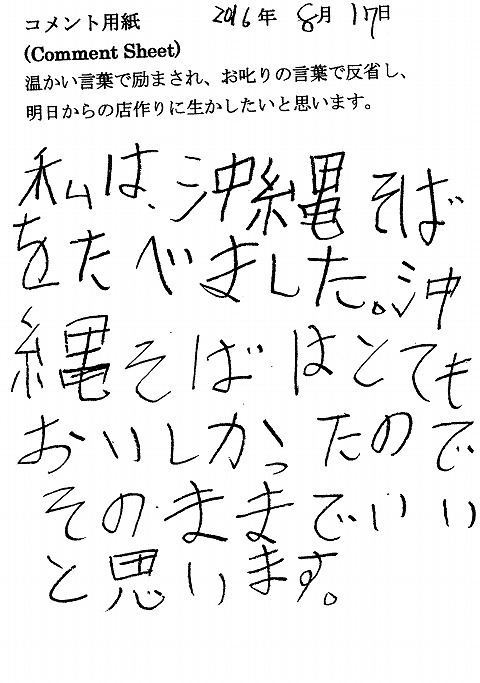 コメント用紙 2016年 8月 17日
(Comment Sheet)
温かい言葉で励まされ、お叱りの言葉で反省し、
明日からの店作りに生かしたいと思います。
私は、沖縄そば
をたべました。沖
縄そばはとても
おいしかったので
そのままでいい
と思います。